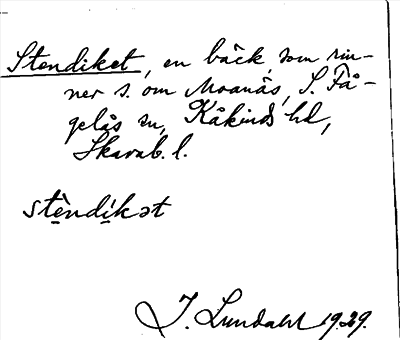 Stendiket, en bäck, som rin-
ner s. om Moanäs, S. Få-
gelås sn, Kåkinds hd,
Skarab. l.
stèndíkət
J. Lundahl 1929.